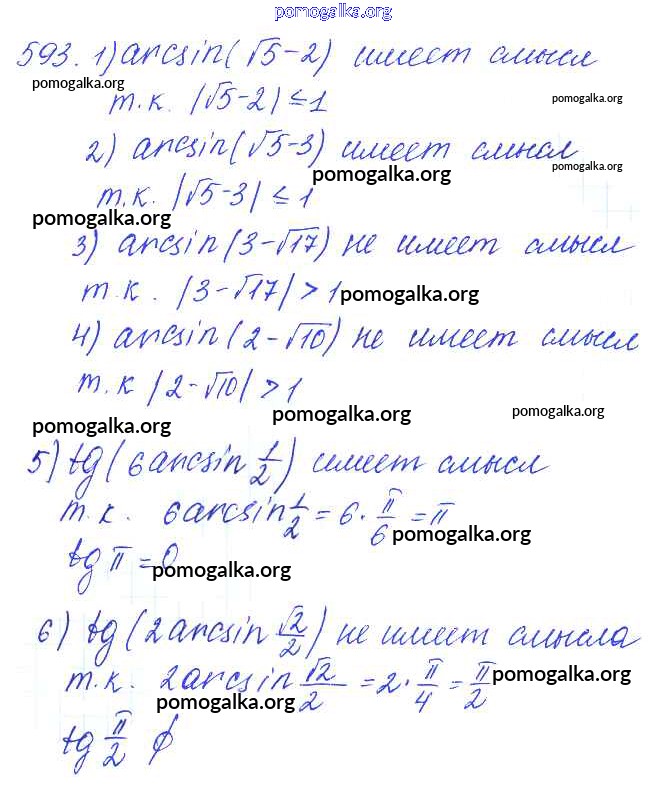 pomogalka.org
593. 1) arcsin(√5-2) имеет смысл
pomogalka.org
т.к. |√5-2| ≤ 1 pomogalka.org
2) arcsin(√5-3) имеет смысл
pomogalka.org pomogalka.org
т.к. |√5-3| ≤ 1
pomogalka.org
3) arcsin(3-√17) не имеет смысл
т.к. |3-√17| > 1 pomogalka.org
4) arcsin(2-√10) не имеет смысл
т.к |2-√10| > 1
pomogalka.org pomogalka.org pomogalka.org
5) tg(6arcsin 1/2) имеет смысл
т.к. 6arcsin 1/2 = 6 · π/6 = π
pomogalka.org
tg π = 0
pomogalka.org
6) tg(2arcsin √2/2) не имеет смысла
т.к. 2arcsin √2/2 = 2 · π/4 = π/2
pomogalka.org pomogalka.org
tg π/2 ∅